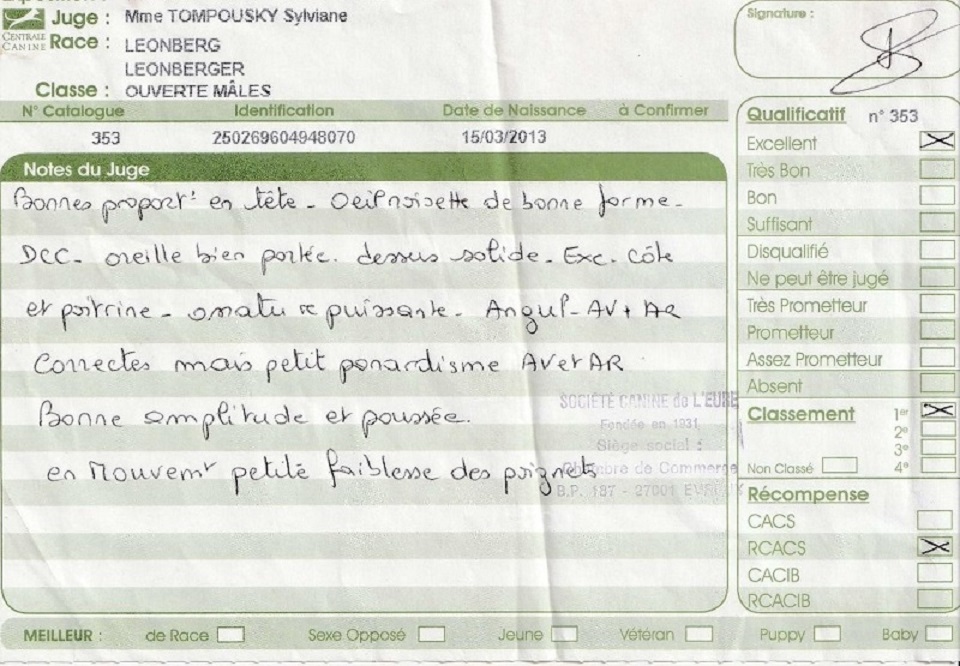 Juge : Mme TOMPOUSKY Sylviane
CENTRALE
CANINE
Race : LEONBERG
LEONBERGER
Classe : OUVERTE MÂLES
N° Catalogue Identification Date de Naissance à Confirmer
353 250269604948070 15/03/2013
Notes du Juge
Bonnes proport° en tête - Oeil noisette de bonne forme -
DCC - oreille bien portée. dessus solide - Exc. côte
et poitrine - puissante - Angul - AV + AR
Correctes mais petit panardisme AV et AR
Bonne amplitude et poussée.
en Mouvemt petite faiblesse des poignets
SOCIÉTÉ CANINE de L'EURE
Fondée en 1931
Siège social :
Chambre de Commerce
B.P. 187 - 27001 EVREUX
Signature :
Qualificatif n° 353
Excellent
Très Bon
Bon
Suffisant
Disqualifié
Ne peut être jugé
Très Prometteur
Prometteur
Assez Prometteur
Absent
Classement 1er
2e
3e
Non Classé 4e
Récompense
CACS
RCACS
CACIB
RCACIB
MEILLEUR : de Race Sexe Opposé Jeune Vétéran Puppy Baby